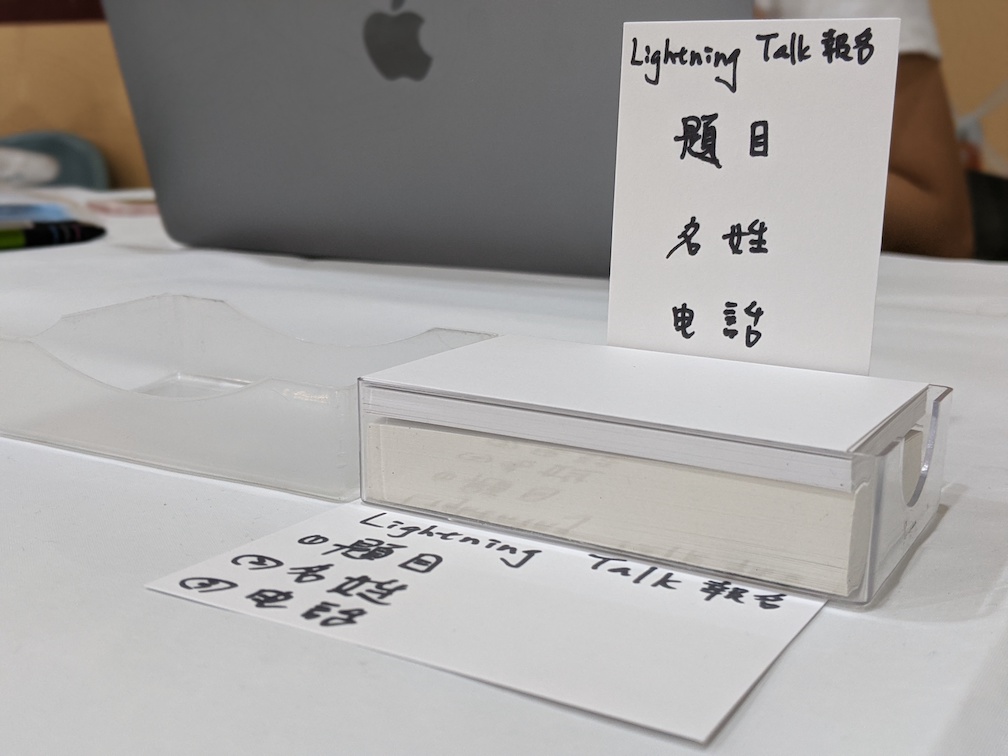 Lightening Talk 報名
題目
名姓
电話
Lightening Talk 報名
① 題目
② 名姓
③ 电話